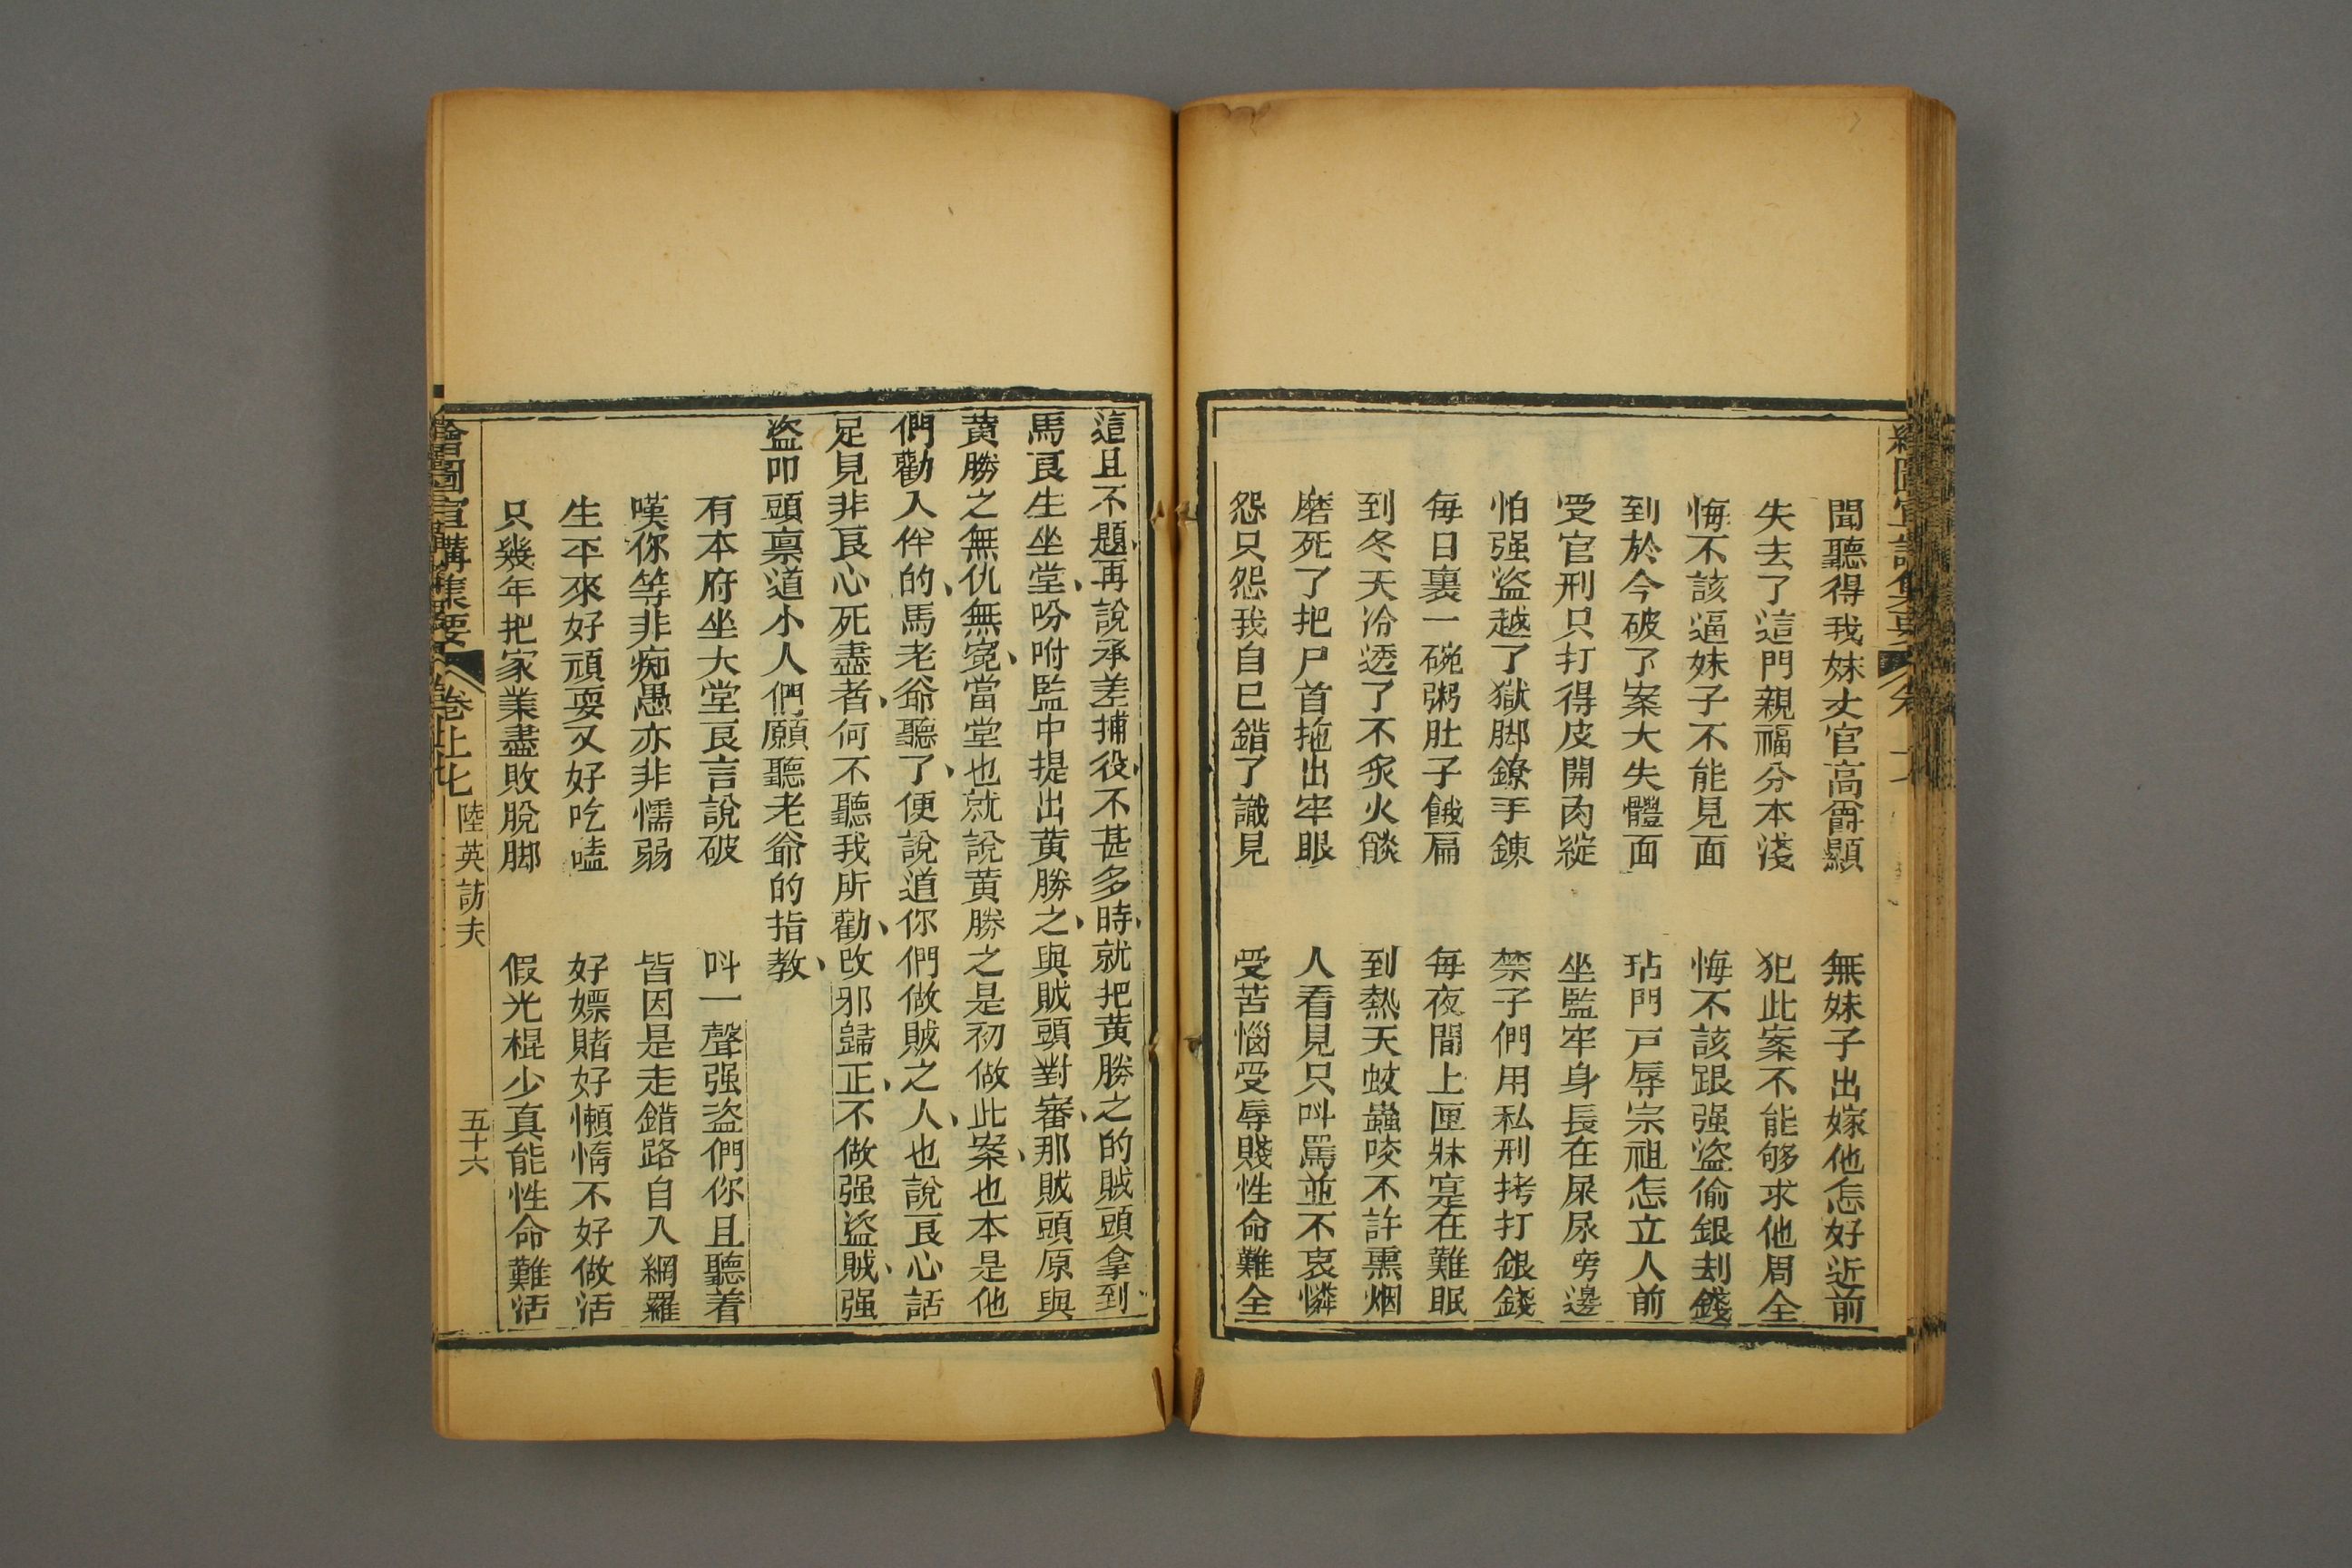 聞聽得我妹丈官高爵顯　無妹子出嫁他怎好近前
失去了這門親福分本淺　犯此案不能够求他周全
悔不該逼妹子不能見面　悔不該跟强盜偷銀刦錢
到於今破了案大失體面　玷門戸辱宗祖怎立人前
受官刑只打得皮開肉綻　坐監牢身長在屎尿旁邊
怕强盜越了獄脚鐐手鍊　禁子們用私刑拷打銀錢
每日裏一碗粥肚子餓扁　每夜間上匣牀寔在難眠
到冬天冷透了不炙火燄　到熱天蚊蟲咬不許熏烟
磨死了把尸首拖出牢眼　人看見只呌駡並不哀憐
怨只怨我自巳錯了識見　受苦惱受辱賤性命難全
這且不題、再說承差捕役、不甚多時、就把黄勝之的賊頭拿到、
馬良生坐堂、吩咐監中提出黄勝之、與賊頭對審、那賊頭原與
黄勝之無仇無寃、當堂也就說黄勝之是初做此案、也本是他
們勸入伴的、馬老爺聽了、便說道你們做賊之人、也說良心話
足見非良心死盡者、何不聽我所勸、改邪歸正、不做强盜賊、强
盜叩頭禀道小人們願聽老爺的指教、
有本府坐大堂良言說破　呌一聲强盜們你且聽着
嘆你等非痴愚亦非懦弱　皆因是走錯路自入網羅
生平來好頑耍又好吃嗑　好嫖賭好懶惰不好做活
只幾年把家業盡敗脫脚　假光棍少真能性命難活
繪圖宣講集要　卷上七　陸英訪夫　五十六